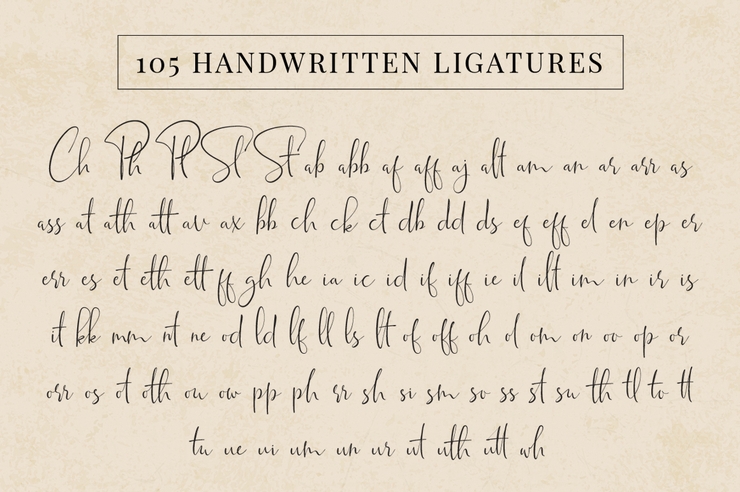 105 HANDWRITTEN LIGATURES
Ch Th Tl Sl St ab abb af aff aj alt am an ar arr as
ass at ath att av ax bb ch ck ct db dd ds ef eff el en ep er
err es et eth ett ff gh he ia ic id if iff ie il ilt im in ir is
it kk mm nt ne od ld lf ll ls lt of off oh ol om on oo op or
orr os ot oth ou ow pp ph rr sh si sm so ss st su th tl to tt
tu ue ui um un ur ut uth utt wh